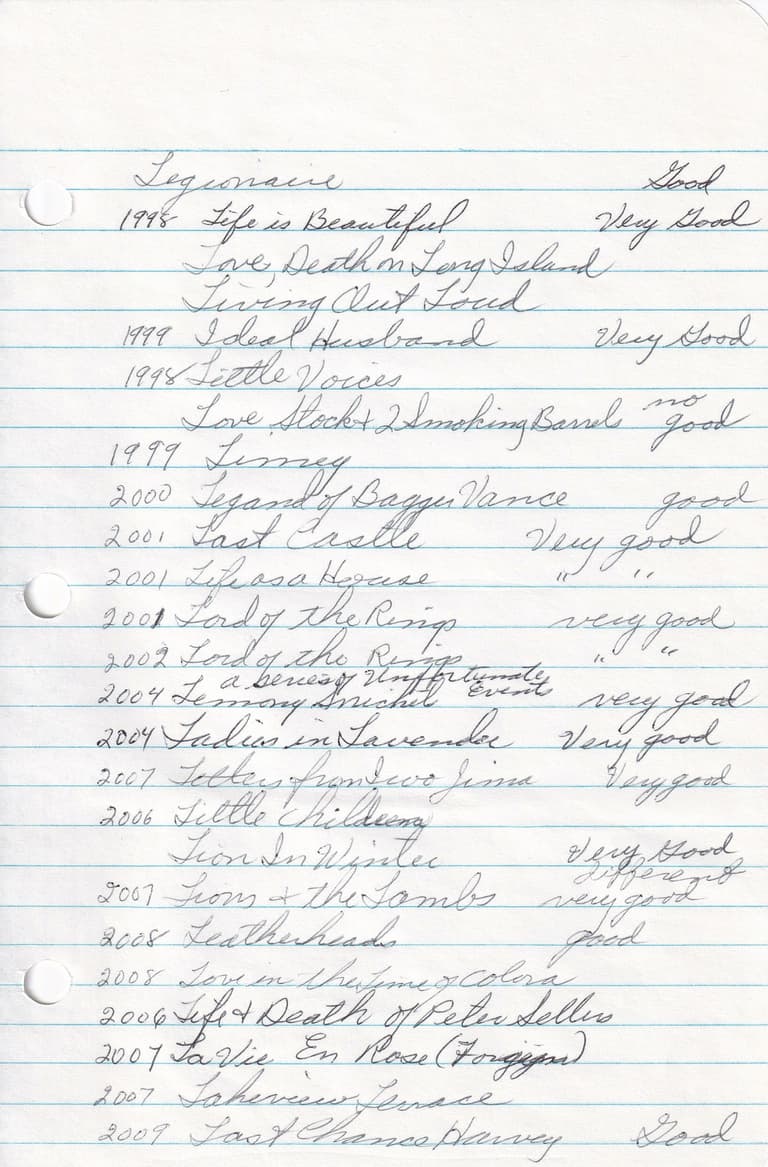 Legionaire Good
1998 Life is Beautiful Very Good
Love, Death on Long Island
Living Out Loud
1999 Ideal Husband Very Good
1998 Little Voices
no
Love, Stock & 2 Smoking Barrels good
1999 Limey
2000 Legand of Bagger Vance good
2001 Last Castle Very good
2001 Life as a House " "
2001 Lord of the Rings very good
2002 Lord of the Rings " "
a series of Unfortunate
2004 Lemony Snichel Events very good
2004 Ladies in Lavender Very good
2007 Letters from Iwo Jima Very good
2006 Little Children
Lion In Winter Very Good
different
2007 Lions & the Lambs very good
2008 Leatherheads good
2008 Love in the Time of Colora
2006 Life & Death of Peter Sellers
2007 La Vie En Rose (Foreign)
2007 Lakeview Terrace
2009 Last Chance Harvey Good